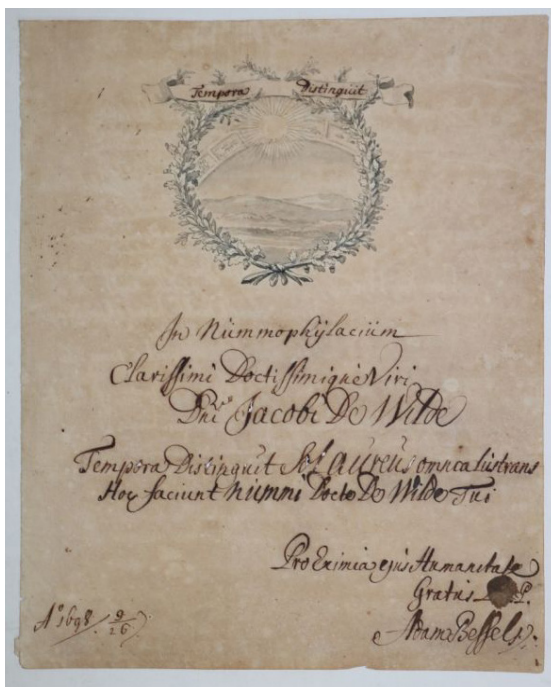 Tempora Distinguit
In Nümmophÿlaciüm
Clarissimi Doctissimiqúe Viri
Dni Jacobi De Wilde
Tempora Distinguit Sol Aureus omnia lustrans
Hoc faciunt Nummi Docte De Wilde Tui
Pro Eximia ejus Humanitate
Gratus P.
Adam Bessels
Aº 1698 9/26